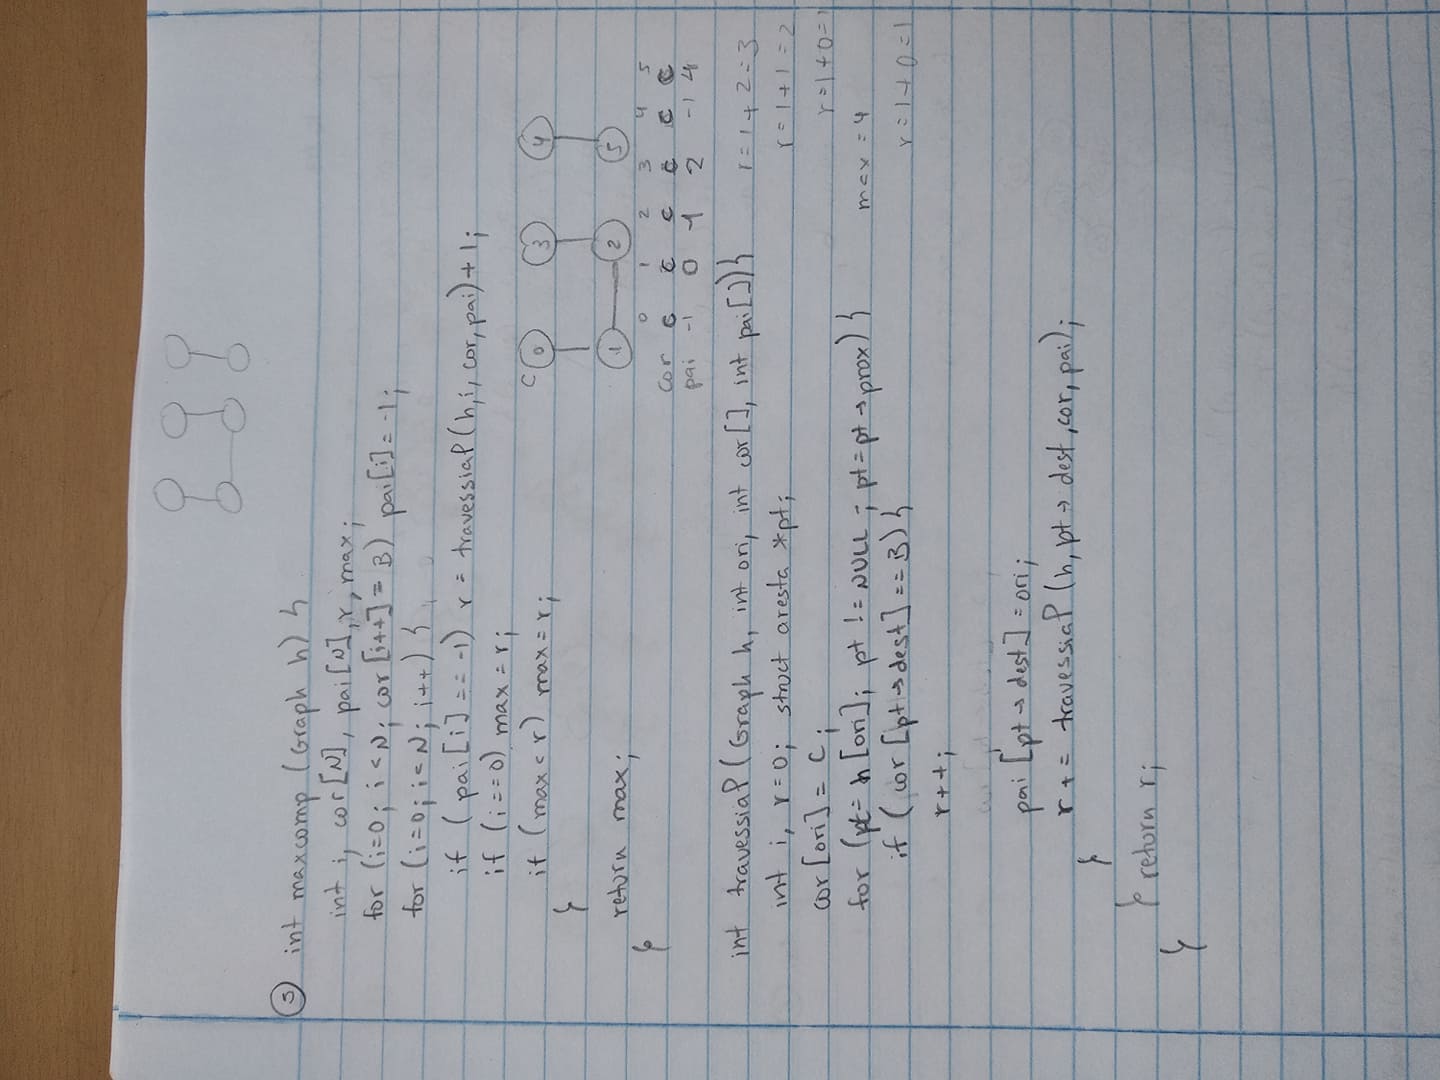 3 int maxcomp (Graph h) {
int i, cor[N], pai[N], r, max;
for (i=0; i<N; cor[i++] = B) pai[i] = -1;
for (i=0; i<N; i++) {
if (pai[i] == -1) r = travessiaP(h, i, cor, pai) + 1;
if (i==0) max = r;
if (max < r) max = r;
}
return max;
}
C 0 3 4
1 2 5
0 1 2 3 4 5
cor C C C C C C
pai -1 0 1 2 -1 4
int travessiaP (Graph h, int ori, int cor[], int pai[]) {
int i, r=0; struct aresta *pt;
cor[ori] = C;
for (pt = h[ori]; pt != NULL; pt = pt→prox) {
if (cor[pt→dest] == B) {
r++;
pai[pt→dest] = ori;
r += travessiaP (h, pt→dest, cor, pai);
}
} return r;
}
r = 1 + 2 = 3
r = 1 + 1 = 2
r = 1 + 0 = 1
max = 4
r = 1 + 0 = 1